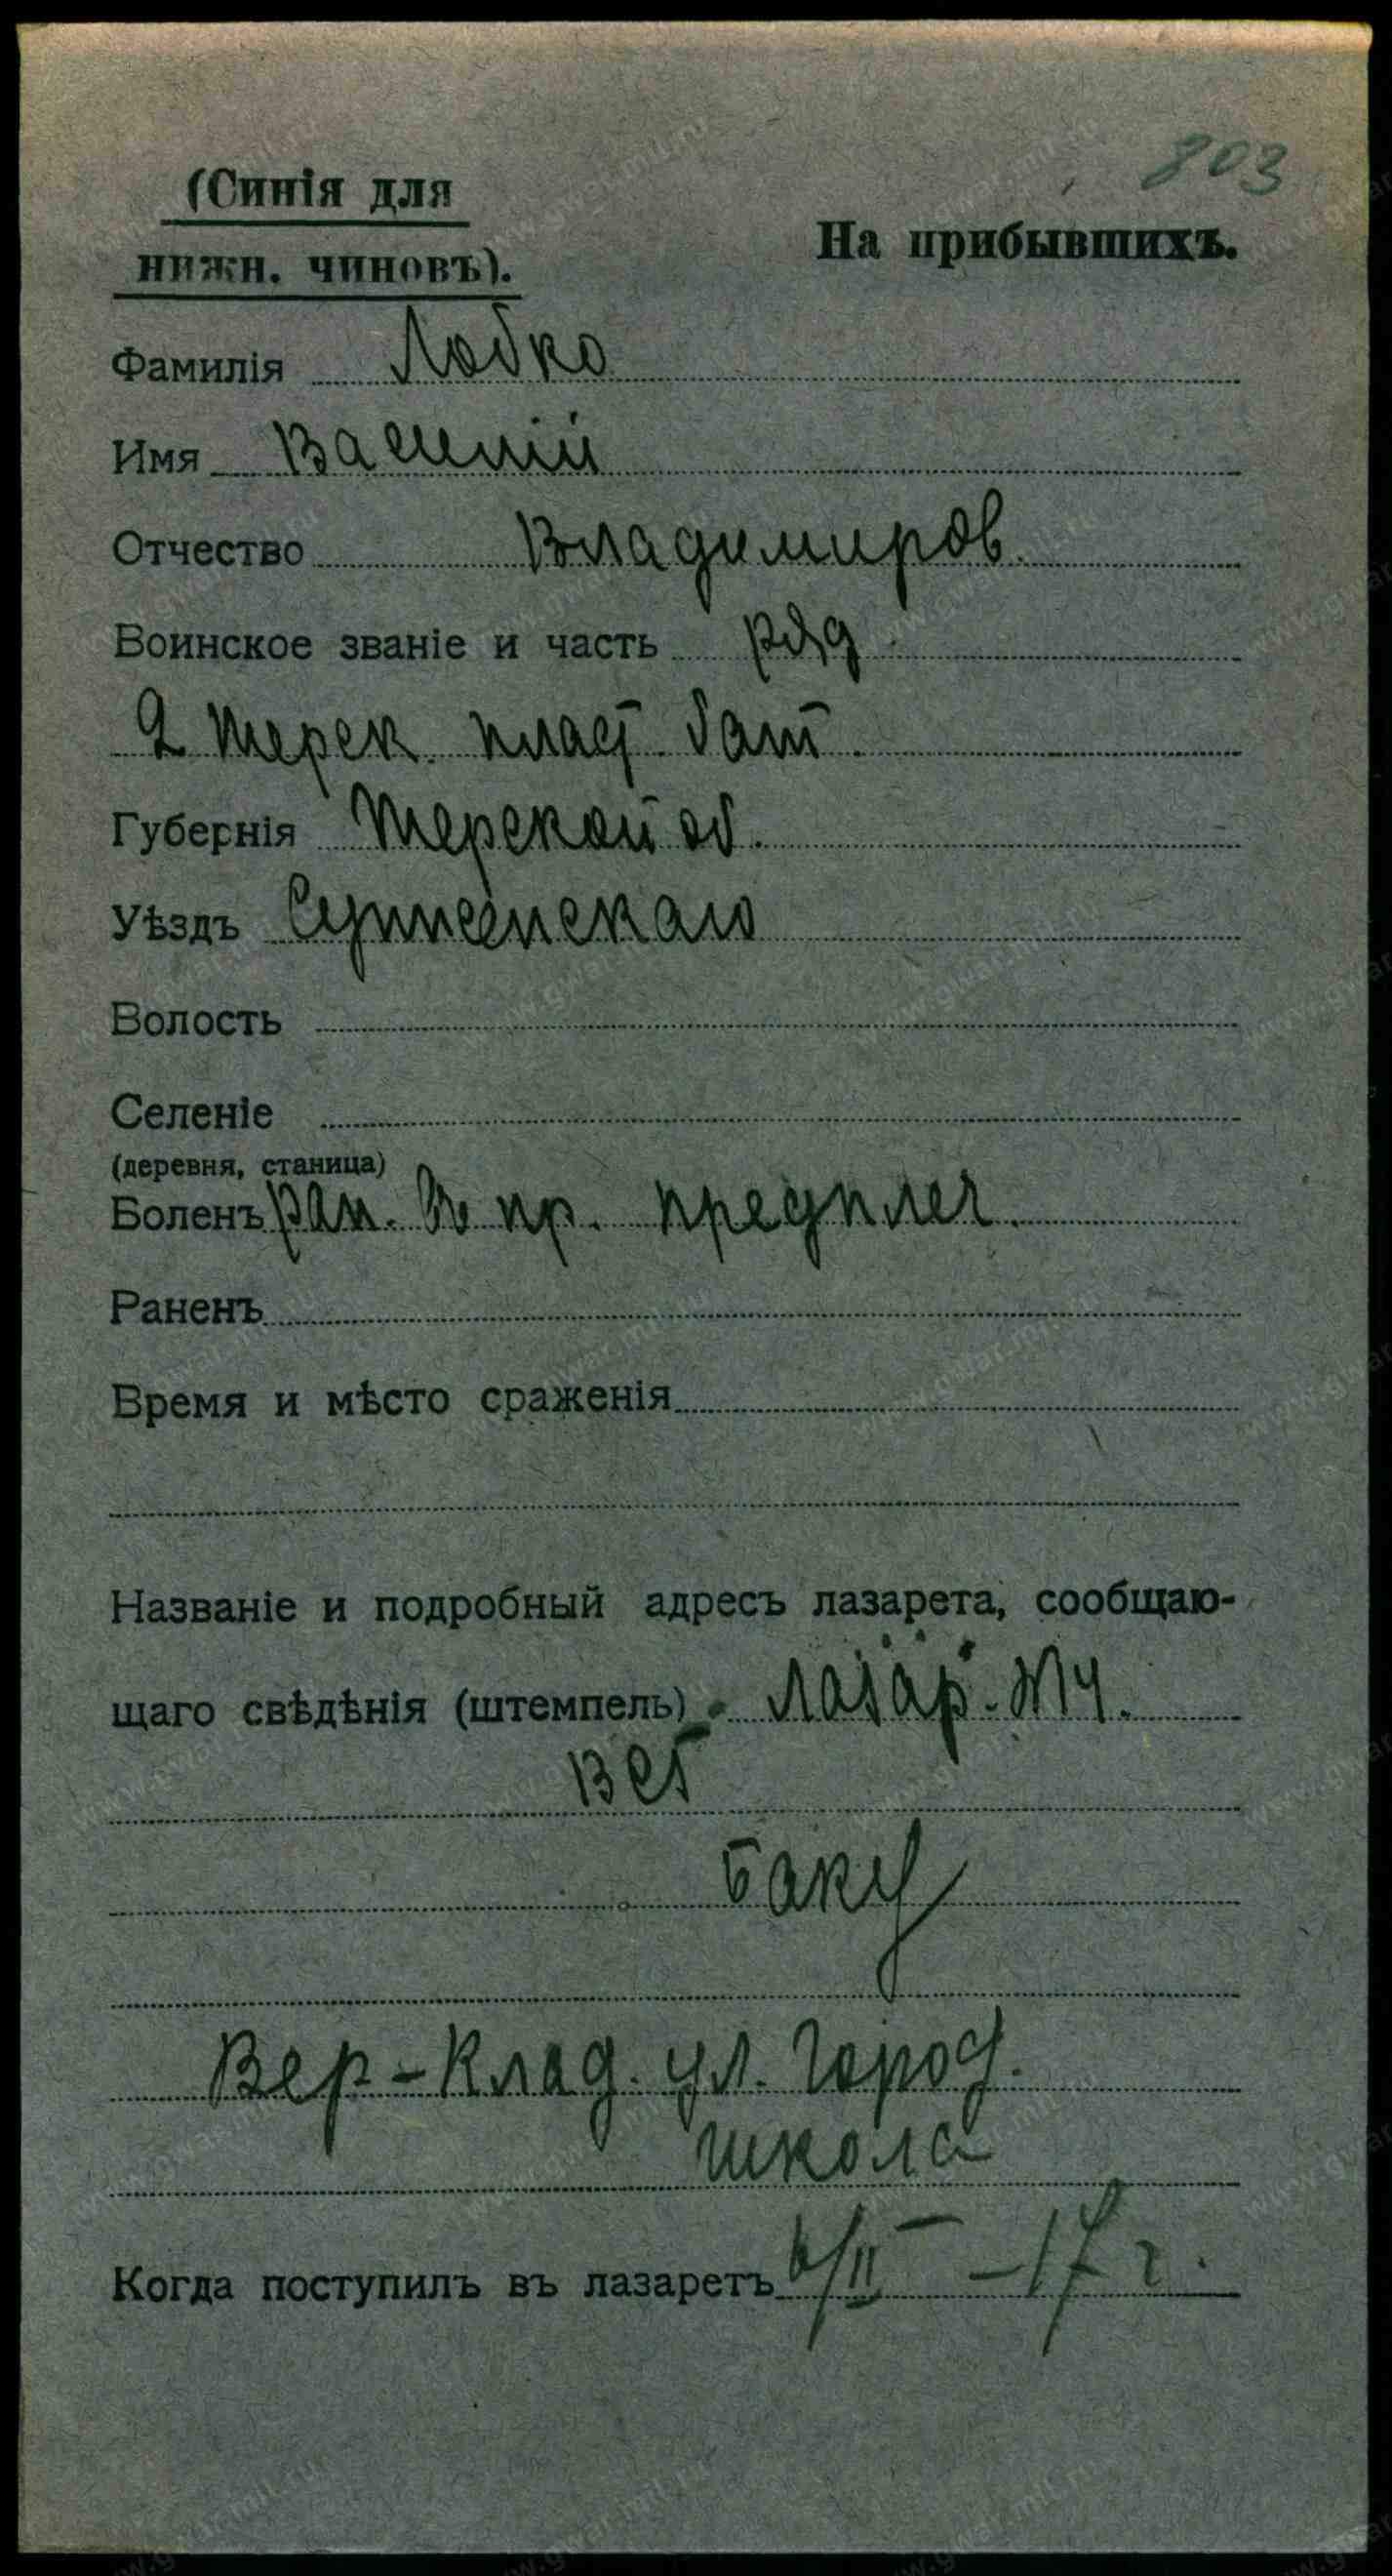 803
(Синія для
нижн. чиновъ).
На прибывшихъ.
Фамилія Лобко
Имя Василій
Отчество Владимиров.
Воинское званіе и часть ряд.
2 Терек. пласт. бат.
Губернія Терской об.
Уѣздъ Сунженскаго
Волость
Селеніе
(деревня, станица)
Боленъ ран. в пр. предплеч.
Раненъ
Время и мѣсто сраженія
Названіе и подробный адресъ лазарета, сообщаю-
щаго свѣдѣнія (штемпель) Лазар. №4.
ВСГ
Баку
Вер-Клад. ул. Город.
школа
Когда поступилъ въ лазаретъ 6/II -17 г.